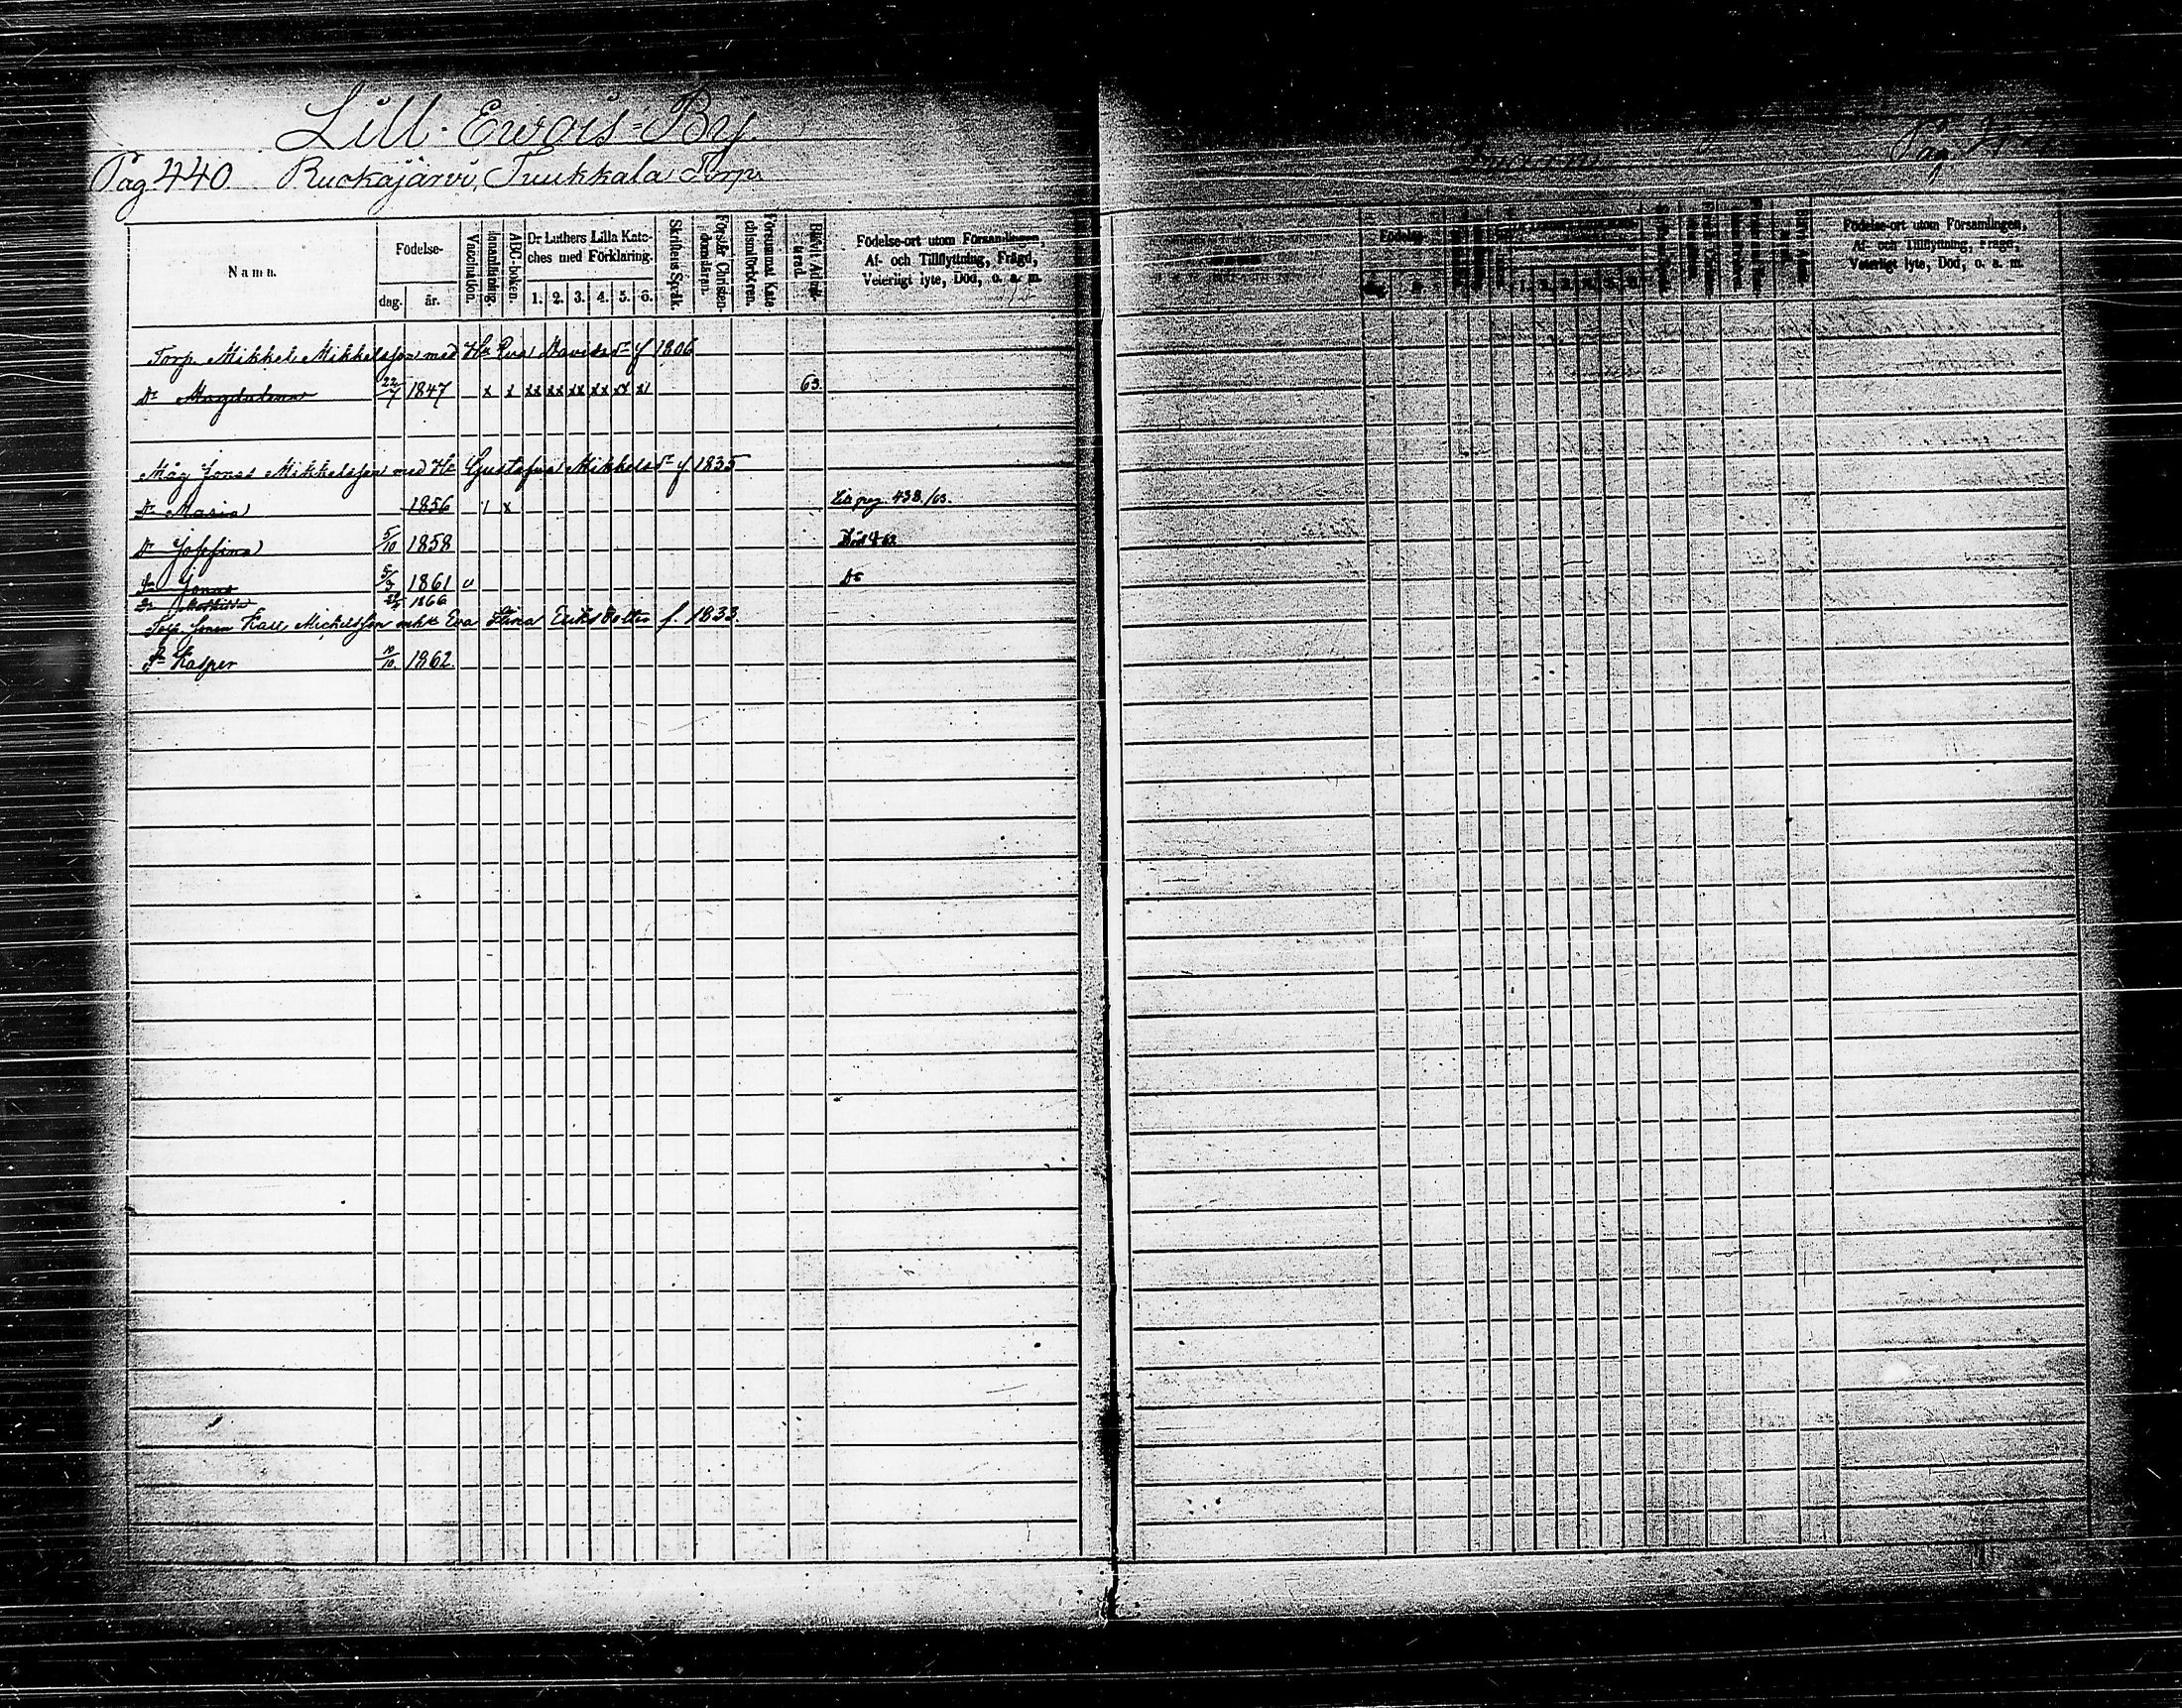 Lill-Ewois-By
Pag 440. Ruokajärvi, Tuukkala Torp
Namn. Födelse- dag. år. Vaccination. Innanläsning. ABC-boken. Dr Luthers Lilla Kate-ches med Förklaring. 1. 2. 3. 4. 5. 6. Skriftens Språk. Förstår Christen-domsläran. Försummat Kate-chismiförhören. Födelse-ort utom Församlingen, Af- och Tillflyttning, Frägd, Veterligt lyte, Död, o. a. m.
Torp. Mikkel Mikkelsson med Hu Eva Davidsdr f 1806
Dr Magdalena 22/7 1847 x x xx xx xx xx xx xx 63.
Måg Jonas Mikkelsson med Hu Gustafva Mikkelsdr f 1835
Dr Maria 1856 / x pag. 438./63.
Dr Josefina 5/10 1858 Död
Sn Jonas 5/3 1861 v Do
Dr Mathilda 1866
Torp. sonen Karl Michelsson Eva Stina Eriksdotter f. 1833.
Sn Kasper 10/10 1862
Pag
Födelse-ort utom Församlingen, Af- och Tillflyttning, Frägd, Veterligt lyte, Död, o. a. m.